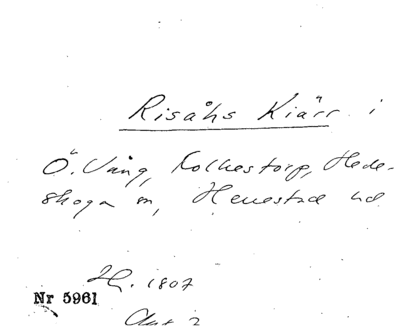 Risåhs Kiärr i
Ö. Vång, Kolkestorp, Hede-
skoga sn, Herrestad hd
H. 1807
Nr 5961
Akt 2